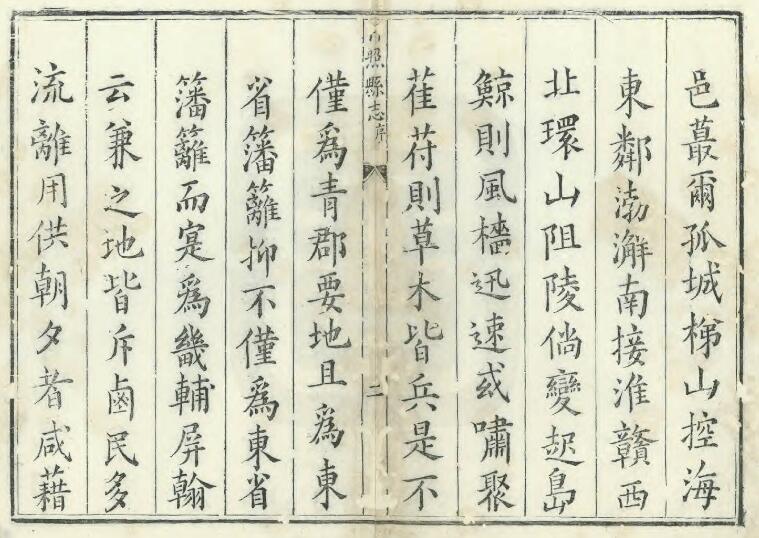 邑蕞爾孤城梯山控海
東鄰渤澥南接淮贛西
北環山阻陵倘變起島
鯨則風檣迅速或嘯聚
萑苻則草木皆兵是不
日照縣志序
二
僅為青郡要地且為東
省籓籬抑不僅為東省
籓籬而寔為畿輔屏翰
云兼之地皆斥鹵民多
流離用供朝夕者咸藉